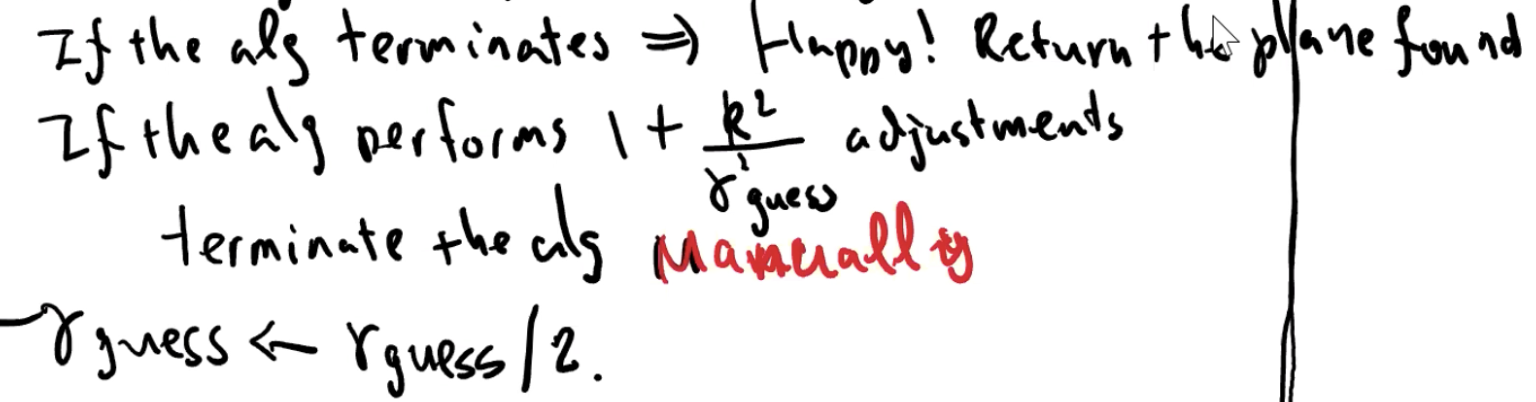 If the alg terminates ⇒ Happy! Return the plane found
If the alg performs 1 + R²/γ²guess adjustments
terminate the alg Manually
γguess ← γguess/2.